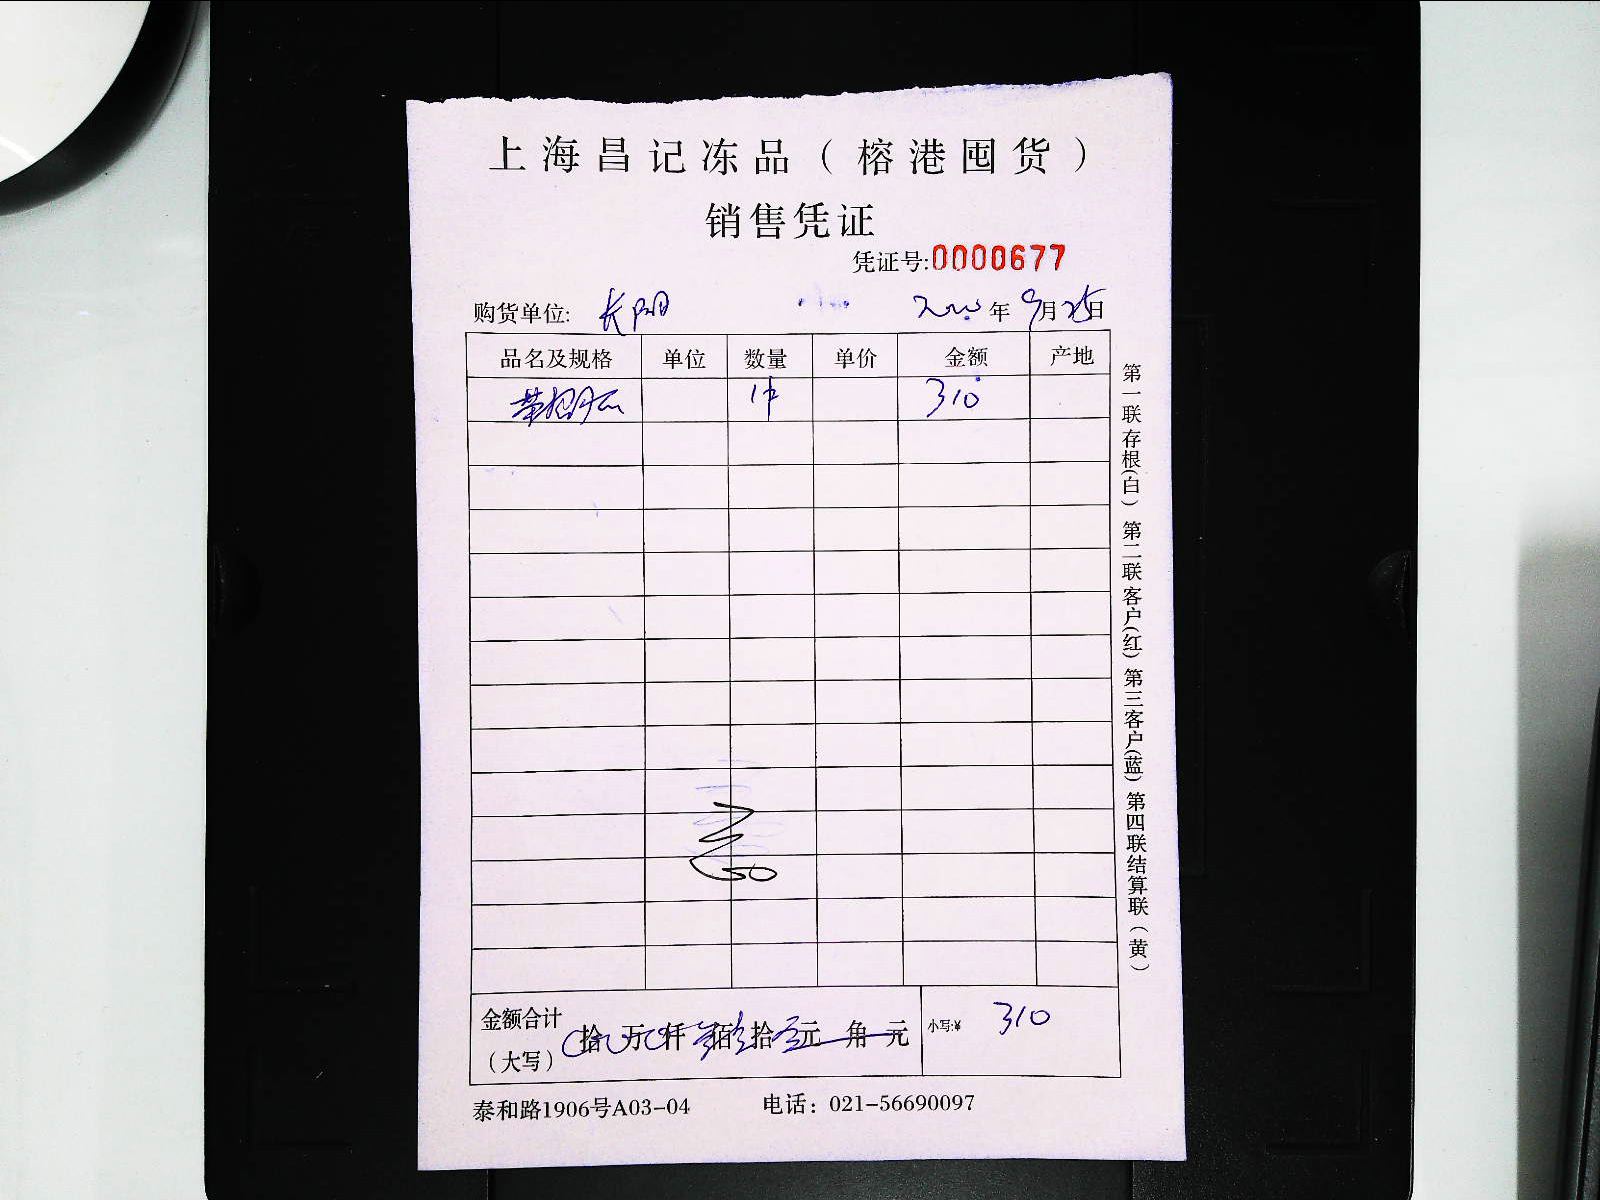 上海昌记冻品（榕港囤货）
销售凭证
凭证号:0000677
购货单位: 长阳 年 9月25日
品名及规格 单位 数量 单价 金额 产地
1件 310
金额合计 拾 万 仟 佰 拾 元 角 元 小写:¥ 310
（大写）
泰和路1906号A03-04 电话：021-56690097
第一联存根(白) 第二联客户(红) 第三客户(蓝) 第四联结算联(黄)